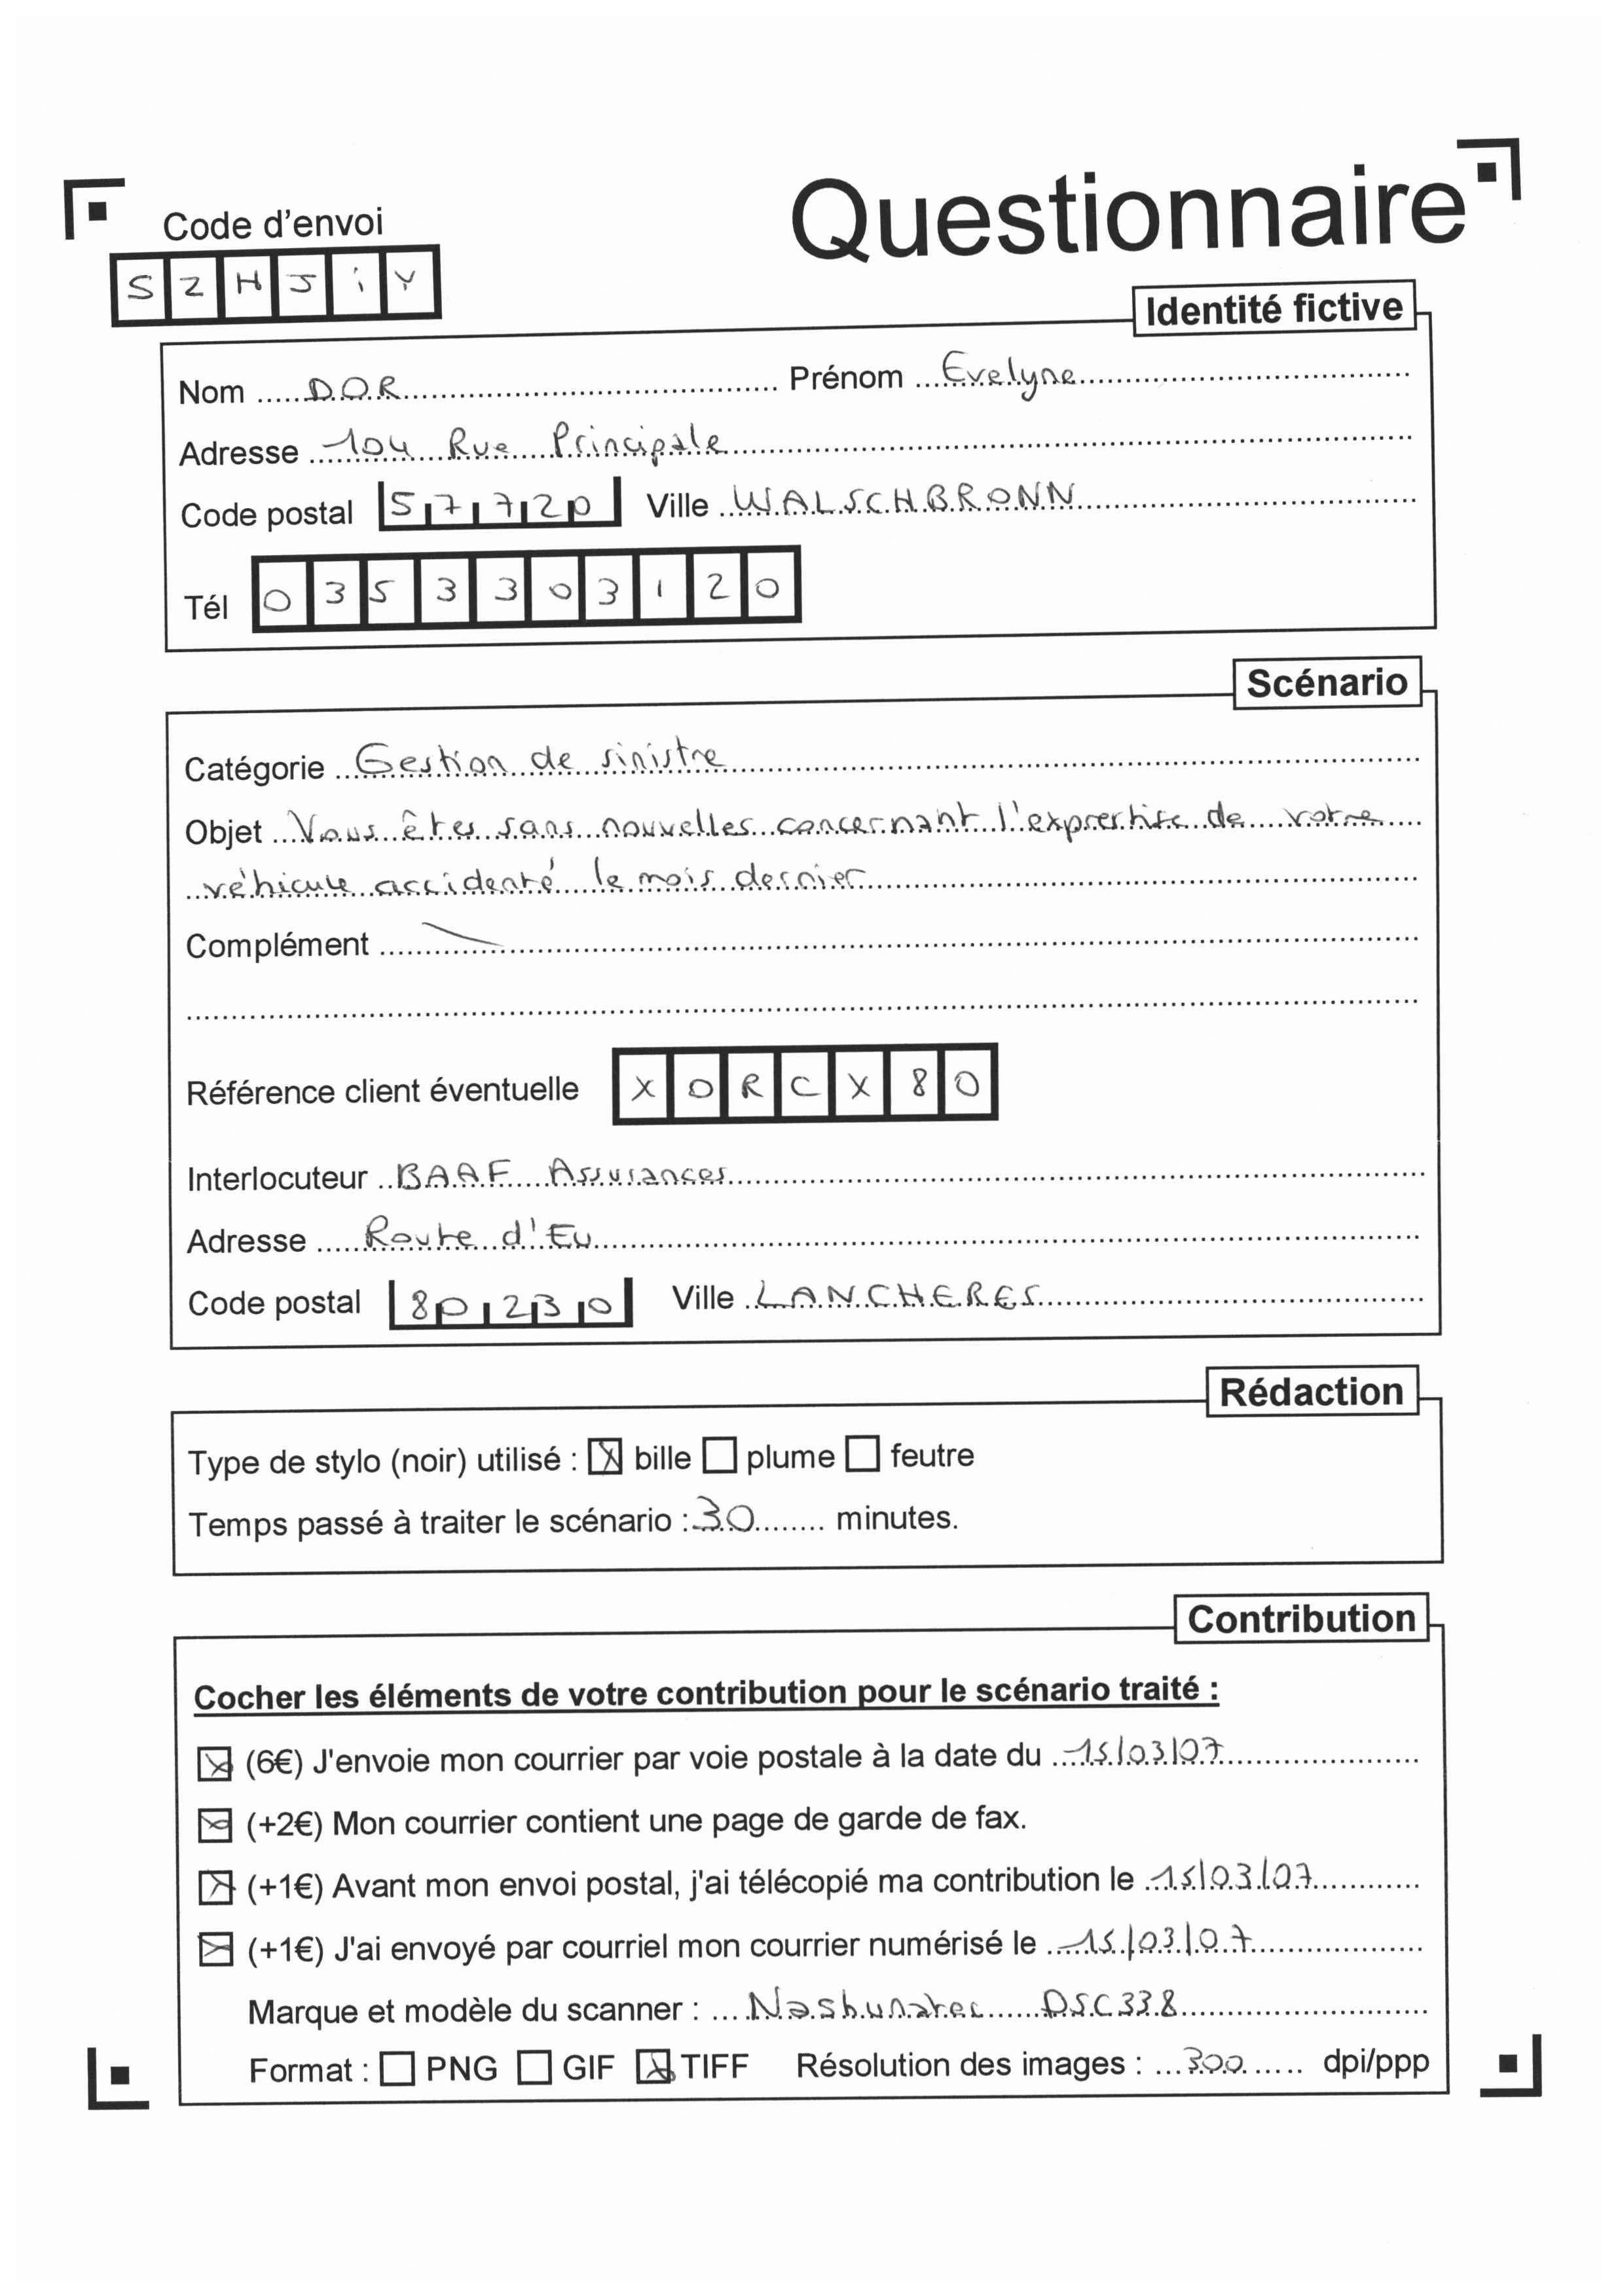 Questionnaire
Code d'envoi
S Z H J i Y
Identité fictive
Nom DOR Prénom Evelyne
Adresse 104 Rue Principale
Code postal 57720 Ville WALSCHBRONN
Tél 0353303120
Scénario
Catégorie Gestion de sinistre
Objet Vous êtes sans nouvelles concernant l'exprertise de votre
véhicule accidenté le mois dernier
Complément
Référence client éventuelle XORCX80
Interlocuteur BAAF Assurances
Adresse Route d'Eu
Code postal 80230 Ville LANCHERES
Rédaction
Type de stylo (noir) utilisé : bille plume feutre
Temps passé à traiter le scénario : 30 minutes.
Contribution
Cocher les éléments de votre contribution pour le scénario traité :
(6€) J'envoie mon courrier par voie postale à la date du 15/03/07
(+2€) Mon courrier contient une page de garde de fax.
(+1€) Avant mon envoi postal, j'ai télécopié ma contribution le 15/03/07
(+1€) J'ai envoyé par courriel mon courrier numérisé le 15/03/07
Marque et modèle du scanner : Nashuatec DSC338
Format : PNG GIF TIFF Résolution des images : 300 dpi/ppp